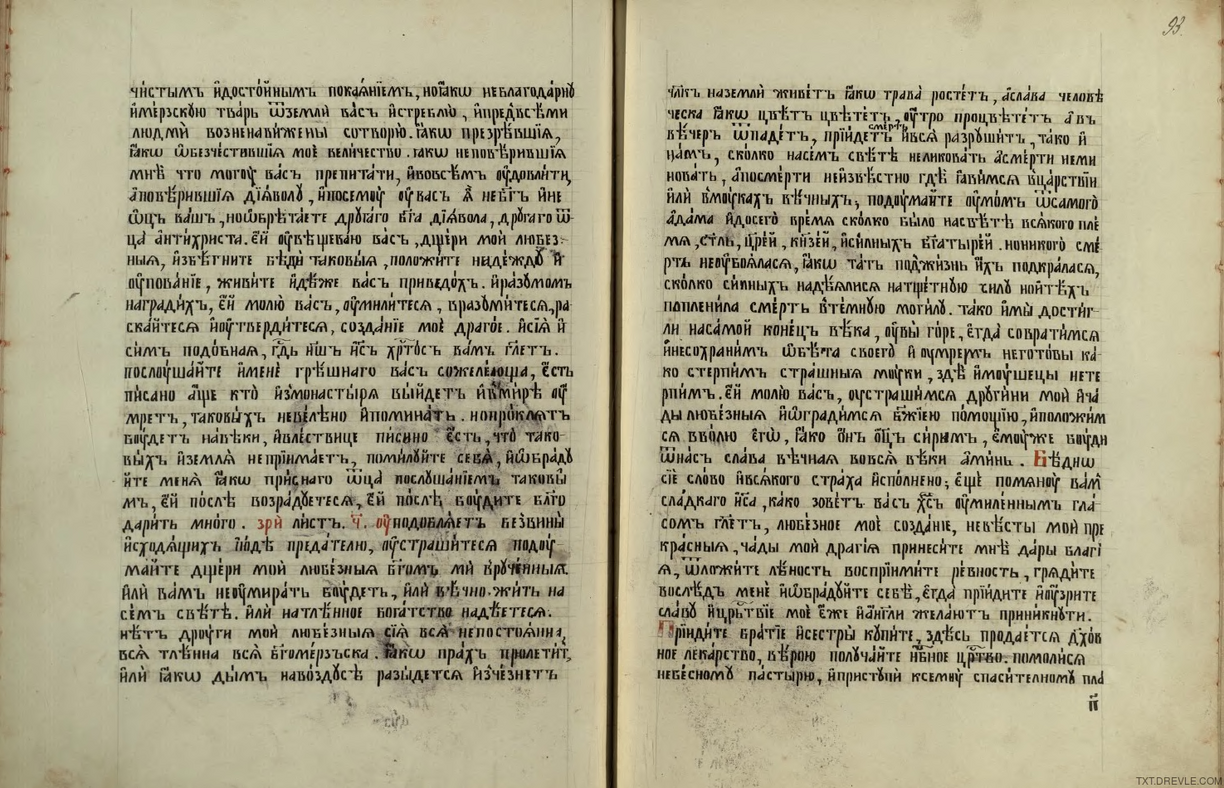 чи́стымъ и҆досто́йнымъ покая́нїемъ, ноꙗ҆́кѡ неблагода́рнꙋ
и҆ме́рзскꙋю тва́рь ѿземлѝ ва́съ и҆стреблю̀, и҆предвсѣ́ми
людмѝ возненави́жены сотворю̀. ꙗ҆́кѡ презрѣ́вшїѧ,
ꙗ҆́кѡ ѡ҆безче́стившїѧ моѐ вели́чество. ꙗ҆́кѡ неповѣ́рившїѧ
мнѣ̀ что могꙋ̀ ва́съ препита́ти, и҆вовсе́мъ ѹ҆дово́лити,
а҆повѣ́рившїѧ дїѧ́волꙋ, и҆посемꙋ̀ ѹ҆ва́съ ѧ҆̀ нѣ́бг҃ъ и҆́не
ѻ҆ц҃ъ ва́шъ, ноѡ҆брѣта́ете дрꙋга́го бг҃а дїѧ́вола, дрꙋга́го ѻ҆
ц҃а̀ а҆нти́христа. є҆́й ѹ҆вѣщева́ю ва́съ, дще́ри моѝ любе́з-
ныѧ, и҆збѣ́гните бѣды̀ таковы́ѧ, положи́те наде́ждꙋ и҆
ѹ҆пова́нїе, живи́те и҆дѣ́же ва́съ приведо́хъ. и҆ра́зꙋмомъ
награди́хъ, є҆́й молю̀ ва́съ, ѹ҆мили́тесѧ, вразꙋми́тесѧ, ра
ска́йтесѧ и҆ѹ҆тверди́тесѧ, созда́нїе моѐ драго́е. и҆сїѧ̀ и҆
си́мъ подо́бнаѧ, гдⷭ҇ь на́шъ і҆и҃съ хрⷭ҇то́съ ва́мъ гл҃етъ.
послꙋ́шайте и҆менѐ грѣ́шнаго ва́съ сожеле́юща, є҆́сть
пи́сано а҆́ще кто̀ и҆змонастырѧ̀ вы́йдетъ и҆вми́рѣ ѹ҆
мре́тъ, таковы́хъ неве́лѣно и҆помина́ть. нопро́клѧтъ
бꙋ́детъ наве́ки, и҆влѣ́ствице пи́сано є҆́сть, что̀ тако
вы́хъ и҆землѧ̀ непрїима́етъ, поми́лꙋйте себѧ̀, и҆ѡ҆бра́дꙋ
йте менѧ̀ ꙗ҆́кѡ при́снаго ѻ҆ц҃а̀ послꙋша́нїемъ таковы́
мъ, є҆́й по́слѣ возра́дꙋетесѧ, є҆́й по́слѣ бꙋ́дите бл҃го
дари́ть мно́го. зрѝ ли́стъ. ч҃. ѹ҆подоблѧ́етъ безвины̀
и҆сходѧ́щихъ і҆ю́дѣ преда́телю, ѹ҆страши́тесѧ подꙋ́
майте дще́ри моѝ любе́зныѧ бг҃омъ мѝ врꙋче́нныѧ.
и҆лѝ ва́мъ неꙋмира́ть бꙋ́детъ, и҆лѝ вѣ́чно жи́ть на
се́мъ свѣ́тѣ. и҆лѝ натлѣ́нное бога́тство надѣ́етесѧ.
нѣ́тъ дрꙋ́ги моѝ любе́зныѧ сїѧ̀ всѧ̀ непостоѧ́нна,
всѧ̀ тлѣ́нна всѧ̀ бг҃оме́рзъска. ꙗ҆́кѡ пра́хъ пролети́тъ,
и҆лѝ ꙗ҆́кѡ ды́мъ навоздꙋ́сѣ разы́детсѧ и҆зче́знетъ
93.
чл҃къ наземлѝ живе́тъ ꙗ҆́кѡ трава̀ росте́тъ, а҆сла́ва человѣ́
ческа ꙗ҆́кѡ цвѣ́тъ цвѣте́тъ, ѹ҆́тро процвѣте́тъ а҆въ
ве́черъ ѿпаде́тъ, прїи́детъ сме́рть и҆всѧ̀ разрꙋши́тъ, та́ко и҆
на́мъ, ско́лко насе́мъ свѣ́тѣ неликова́ть а҆сме́рти неми
нова́ть, а҆посме́рти неизвѣ́стно гдѣ̀ ꙗ҆́вимсѧ вца́рствїи
и҆лѝ вмꙋ́кахъ вѣ́чныхъ, подꙋ́майте ѹ҆мо́мъ ѿсамого
а҆да́ма и҆досего̀ вре́мѧ ско́лько бы́ло насвѣ́тѣ всѧ́кого пле́
мѧ, ст҃ль, цр҃е́й, кн҃зе́й, и҆си́лныхъ бг҃аты́рей. нониκого̀ сме́
рть неꙋбоѧ́ласѧ, ꙗ҆́кѡ та́тъ поджи́знь и҆́хъ подкра́ласѧ,
ско́лько си́лныхъ надѣ́ѧлисѧ натще́тнꙋю си́лꙋ ноитѣ́хъ
поплени́ла сме́рть вте́мнꙋю моги́лꙋ. та́ко и҆мы̀ дости́г-
ли наса́мой коне́цъ вѣ́ка, ѹ҆вы̀ го́ре, є҆гда̀ совра́тимсѧ
и҆несохрани́мъ ѡ҆бѣ́та своего̀ и҆ ѹ҆мре́мъ него́товы ка́-
ко сте́рпимъ стра́шныѧ мꙋ́ки, здѣ̀ и҆мꙋ́щецы нете
рпи́мъ. є҆́й молю̀ ва́съ, ѹ҆страши́мсѧ дрꙋги́ни моѝ и҆ча́
ды любе́зныѧ и҆ѡ҆гради́мсѧ бж҃їею по́мощїю, и҆поло́жим
сѧ вво́лю є҆гѡ̀, ꙗ҆́ко ѻ҆́нъ ѻ҆ц҃ъ си́рымъ, є҆мꙋ́же бꙋ́ди
ѿна́съ сла́ва вѣ́чнаѧ вовсѧ̀ вѣ́ки а҆ми́нь. Бѣ́днѡ
сїѐ сло́во и҆всѧ́кого стра́ха и҆спо́лнено, є҆щѐ помѧнꙋ̀ ва́м
сла́дкаго і҆и҃са, ка́ко зове́тъ ва́съ хрⷭ҇то́съ ѹ҆миле́ннымъ гла́
сомъ гл҃етъ, любе́зное моѐ созда́нїе, невѣ́сты моѝ пре
кра́сныѧ, ча́ды моѝ драгі́ѧ принеси́те мнѣ̀ да́ры благі́
ѧ, ѿложи́те лѣ́ность воспрїими́те ре́вность, грѧди́те
вослѣ́дъ менѐ и҆ѡ҆бра́дꙋйте себѐ, є҆гда̀ прїи́дите и҆ѹ҆́зрите
сла́вꙋ и҆црⷭ҇твїе моѐ є҆́же и҆а҆́нг҃ли жела́ютъ прини́кнꙋти.
Прїиди́те бра́тїе и҆се́стры кꙋпи́те, здѣ́сь продае́тсѧ дх҃о́в
ное лека́рство, вѣ́рою полꙋча́йте нбⷭ҇ное црⷭ҇тво. помоли́сѧ
небе́сномꙋ па́стырю, и҆пристꙋпѝ ксемꙋ̀ спаси́телномꙋ пла
п҃і
TXT.DREVLE.COM